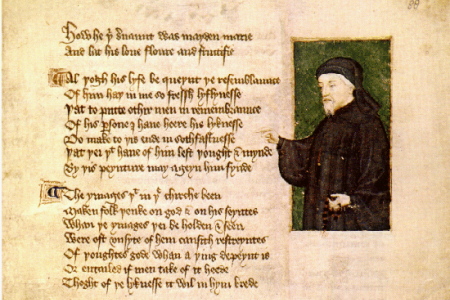 88
How he þi seruaunt was mayden marie
And lat his loue floure and fructifie
Al þogh his lyfe be queynt þe resemblaunce
Of him haþ in me so fressh lyflynesse
Þat to putte othir men in remembraunce
Of his ꝑsone I haue heere his lyknesse
Do make to þis ende in sothfastnesse
Þat þei þᵗ haue of him lest þought & mynde
By þis peynture may ageyn him fynde
The ymages þᵗ in þᵉ chirche been
Maken folk þenke on god & on his seyntes
Whan þe ymages þei beholden & seen
Were oft vnsyte of hem causith restreyntes
Of þoughtes gode whan a þing depeynt is
Or entailed if men take of it heede
Thoght of þe lyknesse it wil in hym brede